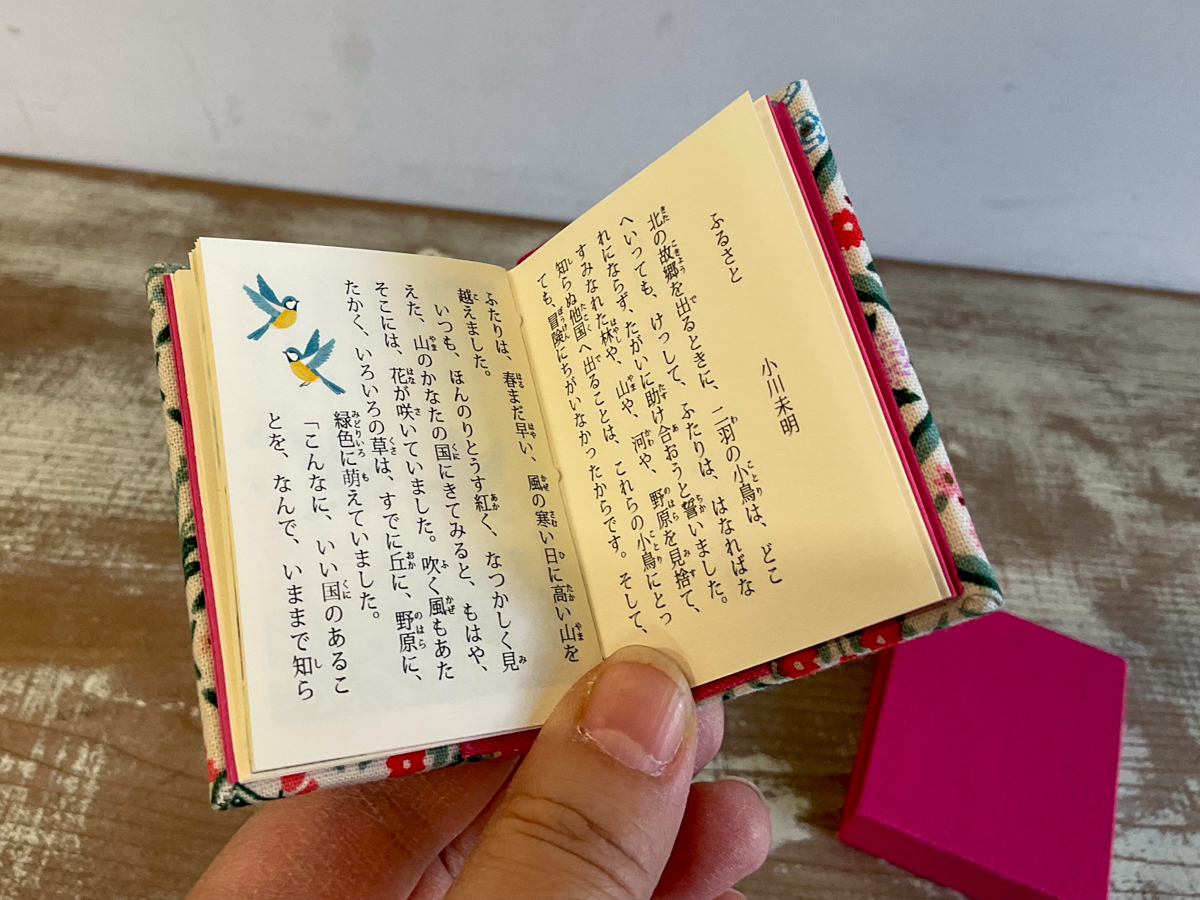 ふるさと
小川未明
北の故郷を出るときに、二羽の小鳥は、どこ
へいっても、けっして、ふたりは、はなればな
れにならず、たがいに助け合おうと誓いました。
すみなれた林や、山や、河や、野原を見捨て、
知らぬ他国へ出ることは、これらの小鳥にとっ
ても、冒険にちがいなかったからです。そして、
ふたりは、春まだ早い、風の寒い日に高い山を
越えました。
いつも、ほんのりとうす紅く、なつかしく見
えた、山のかなたの国にきてみると、もはや、
そこには、花が咲いていました。吹く風もあた
たかく、いろいろの草は、すでに丘に、野原に、
緑色に萌えていました。
「こんなに、いい国のあるこ
とを、なんで、いままで知ら